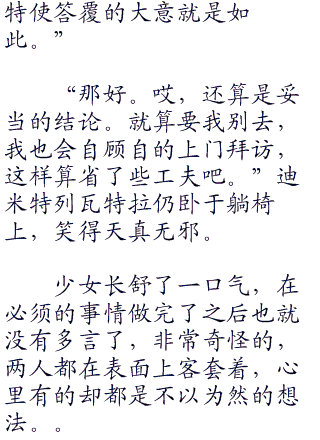 特使答覆的大意就是如
此。”
“那好。哎，还算是妥
当的结论。就算要我别去，
我也会自顾自的上门拜访，
这样算省了些工夫吧。”迪
米特列瓦特拉仍卧于躺椅
上，笑得天真无邪。
少女长舒了一口气，在
必须的事情做完了之后也就
没有多言了，非常奇怪的，
两人都在表面上客套着，心
里有的却都是不以为然的想
法。。